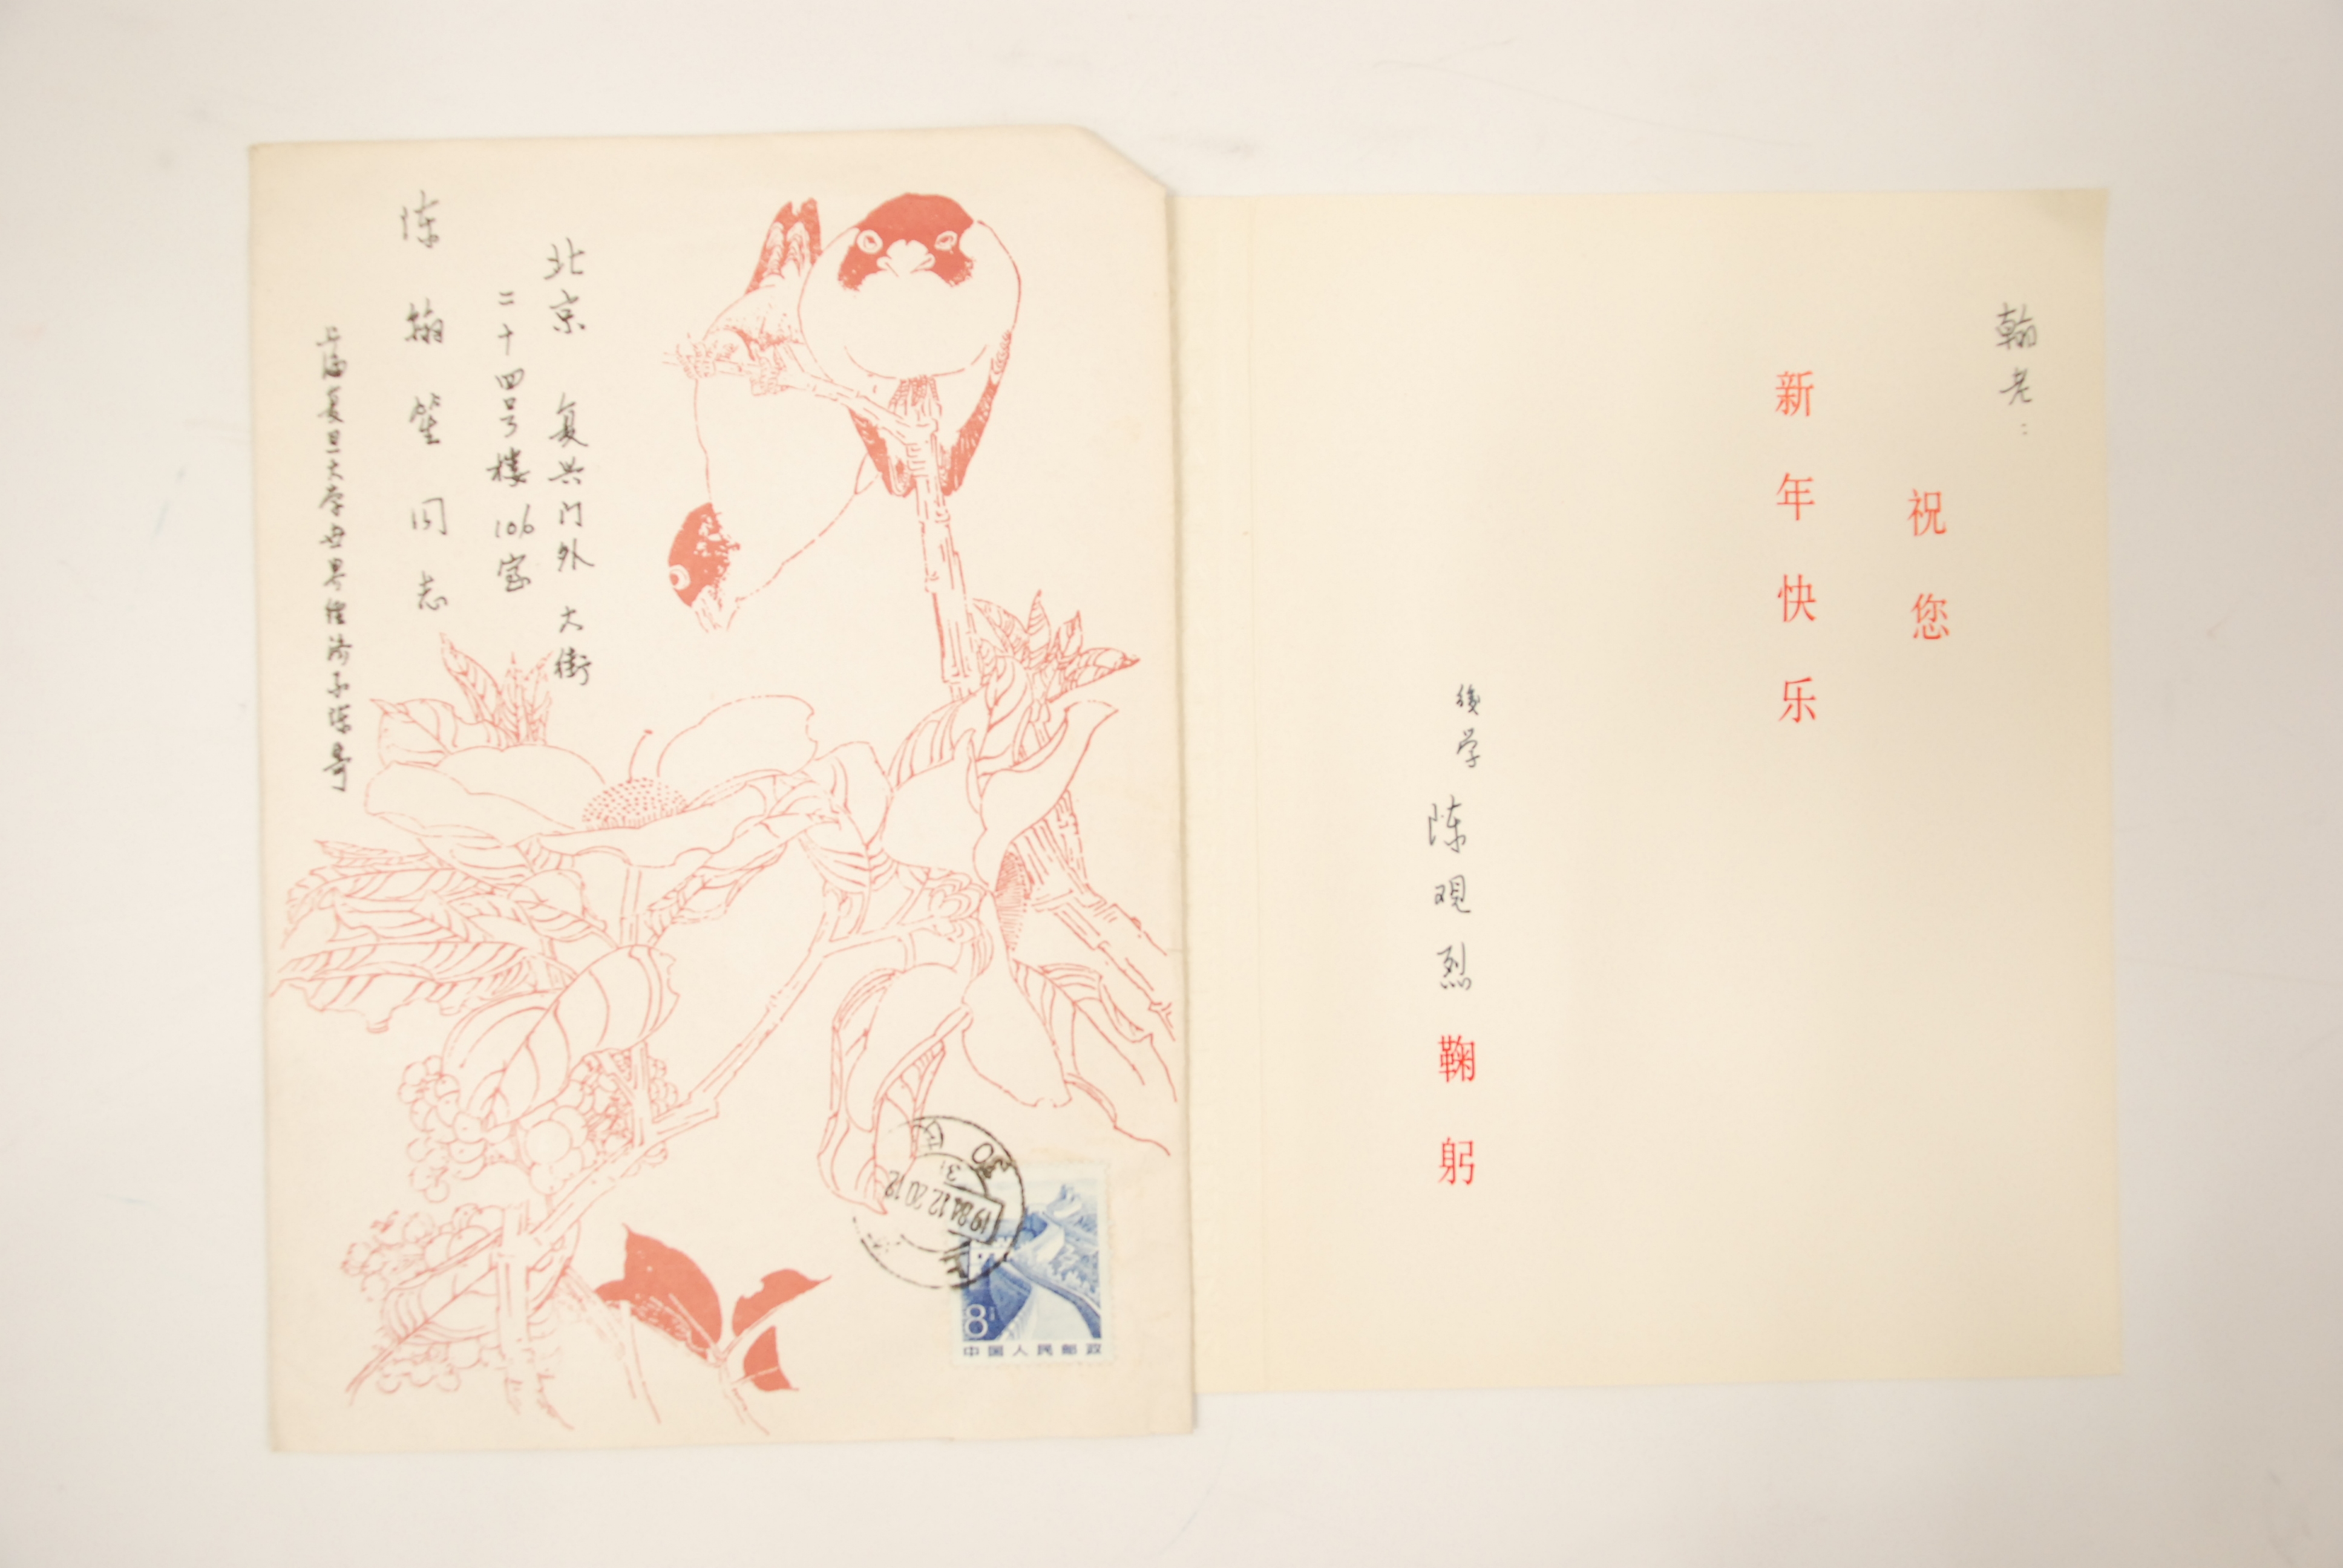 北京 复兴门外大街
二十四号楼 106室
陈翰笙同志
上海复旦大学世界经济系陈寄
1984.12.20.12
8分
中国人民邮政
翰老:
祝您
新年快乐
後学 陈观烈 鞠躬